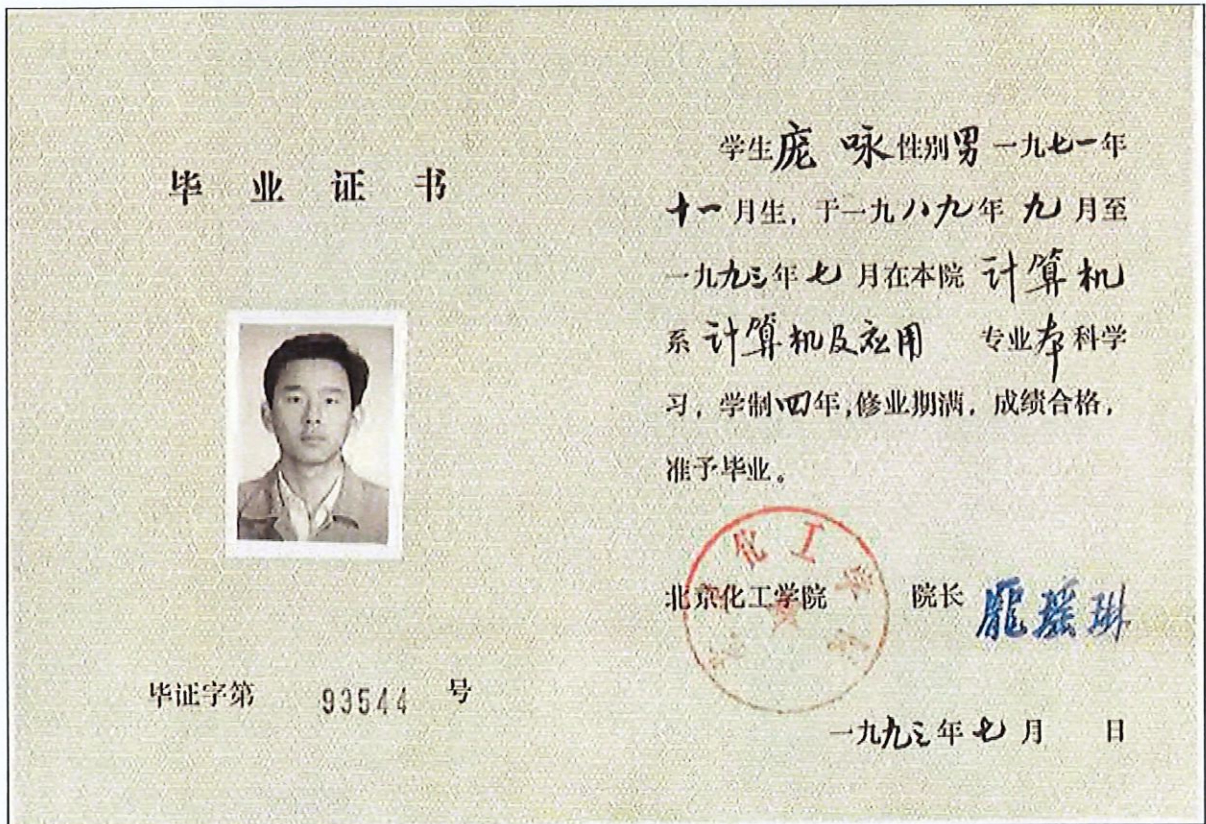 毕 业 证 书
毕证字第 93544 号
学生庞 咏性别男一九七一年
十一月生，于一九八九年 九月至
一九九三年七月在本院 计算机
系 计算机及应用 专业本科学
习，学制四年，修业期满，成绩合格，
准予毕业。
北京化工学院 院长
化工学
一九九三年七月 日